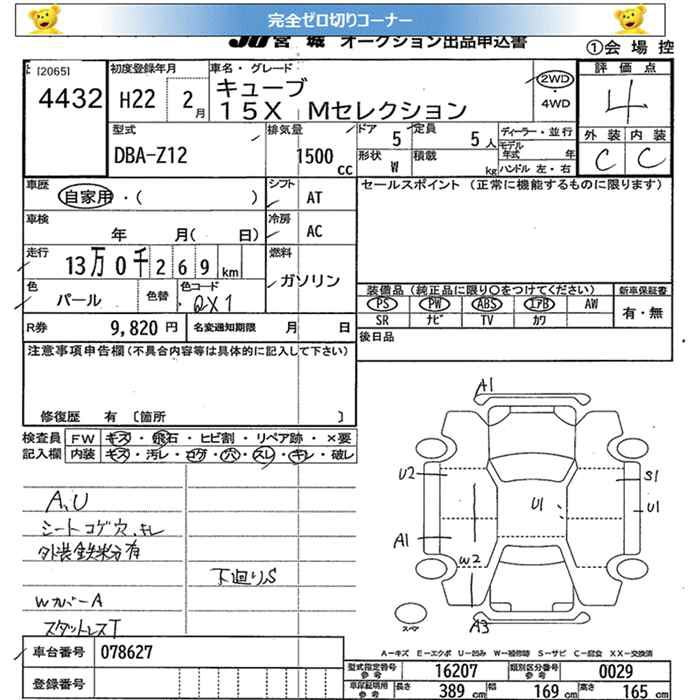 完全ゼロ切りコーナー
JU宮城 オークション出品申込書 ①会場控
[2065]
4432
初度登録年月
H22 2月
車名・グレード
キューブ
15X Mセレクション
2WD
・4WD
評価点
4
外装 内装
C C
型式
DBA-Z12
排気量
1500cc
ドア 5
定員 5人
形状 W
積載 kg
ディーラー・並行
モデル年式 年
ハンドル 左・右
車歴
自家用・( )
シフト AT
セールスポイント (正常に機能するものに限ります)
車検
年 月( 日)
冷房 AC
走行
13万0千269km
燃料
ガソリン
色
パール
色替
色コード
QX1
装備品 (純正品に限り○をつけてください)
新車保証書
PS PW ABS エアB AW
有・無
SR ナビ TV カワ
R券 9,820円
名変通知期限 月 日
後日品
注意事項申告欄 (不具合内容等は具体的に記入して下さい)
修復歴 有 〔箇所 〕
検査員
記入欄
FW キズ・飛石・ヒビ割・リペア跡・×要
内装 キズ・汚レ・コゲ・穴・スレ・キレ・破レ
A,U
シートコゲ穴、キレ
外装鉄粉有
下廻りS
WカバーA
スタットレスT
A1
U2
S1
U1
U1
A1
W2
A3
スペア
A-キズ E-エクボ U-凹み W-補修跡 S-サビ C-腐食 XX-交換済
車台番号 078627
登録番号
型式指定番号 参考 16207
類別区分番号 参考 0029
車庫証明用 参考 長さ 389cm 幅 169cm 高さ 165cm